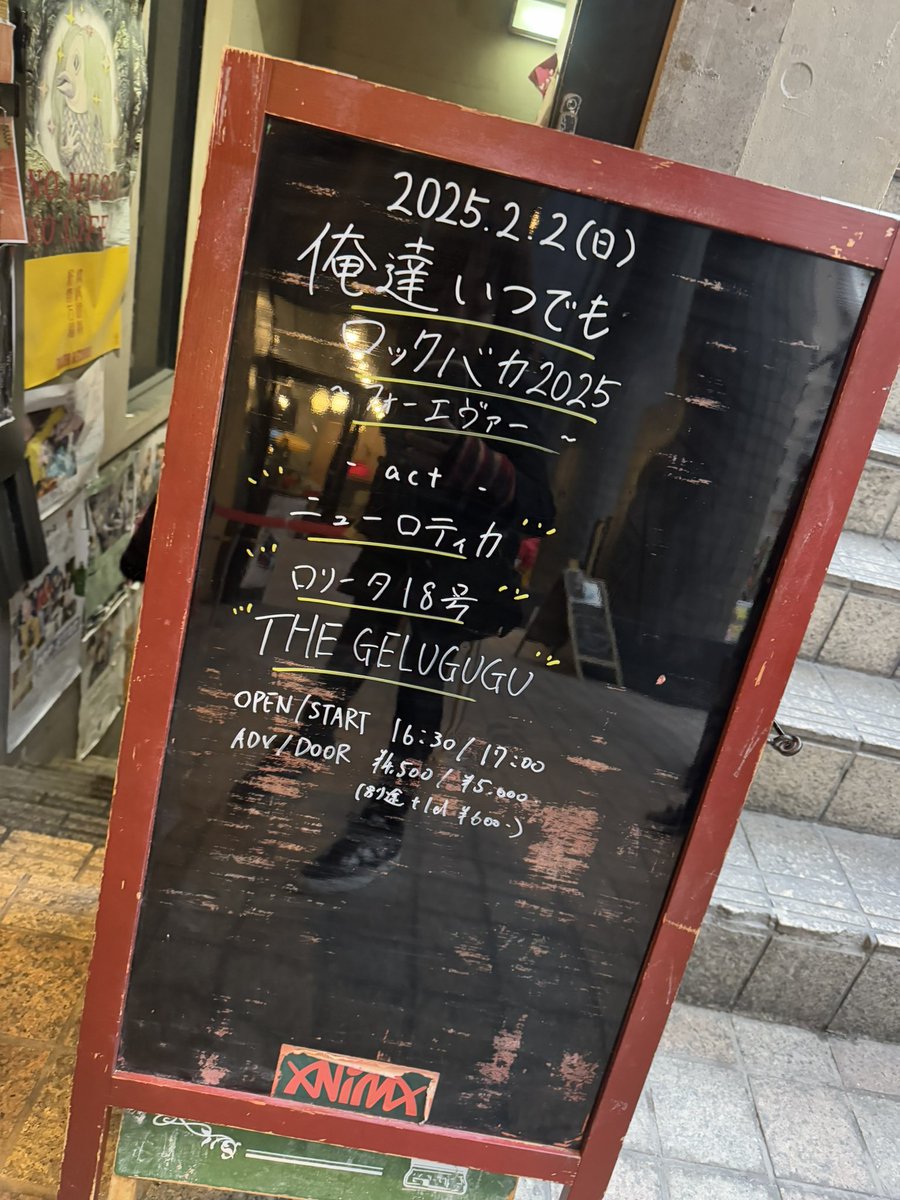 2025.2.2(日)
俺達いつでも
ロックバカ2025
~フォーエヴァー~
- act -
ニューロティカ
ロリータ18号
THE GELUGUGU
OPEN/START 16:30/17:00
ADV/DOOR ¥4,500/¥5,000.
(別途+1d ¥600.)
XNIMX